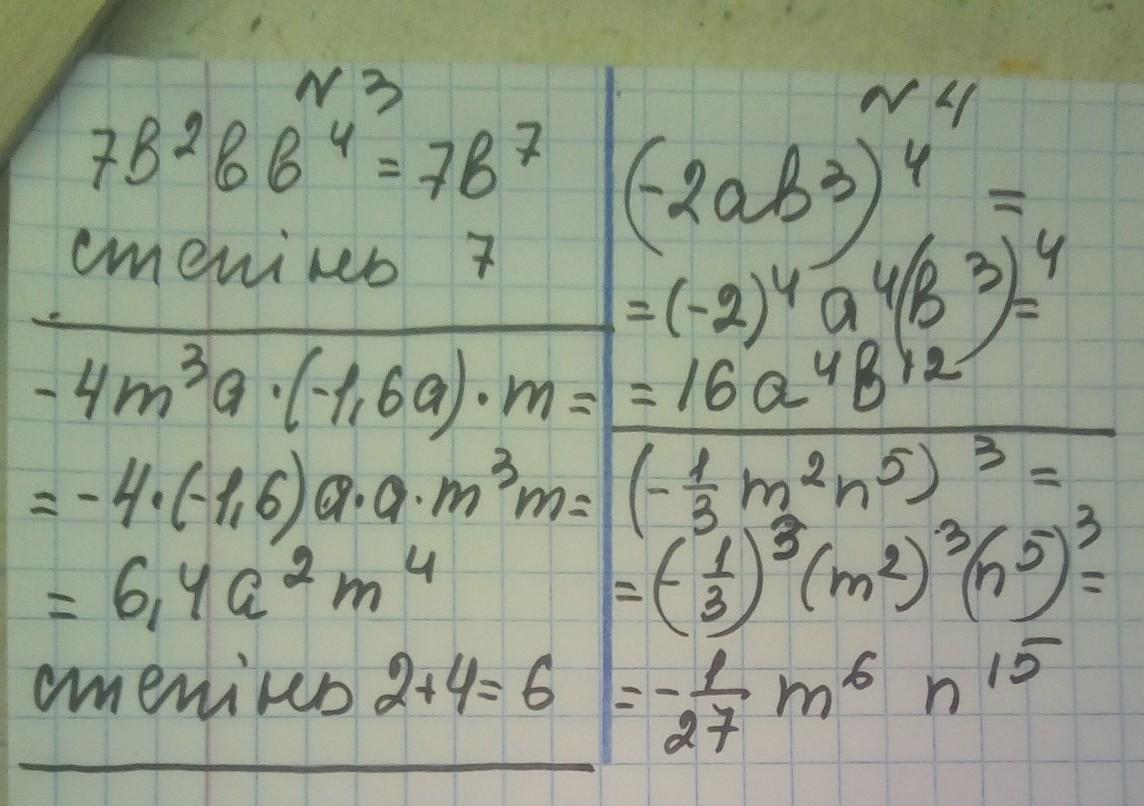 № 3
7в²вв⁴ = 7в⁷
степінь 7
-4m³a·(-1,6a)·m =
= -4·(-1,6)a·a·m³m =
= 6,4a²m⁴
степінь 2+4=6
№ 4
(-2ab³)⁴ =
= (-2)⁴a⁴(b³)⁴ =
= 16a⁴b¹²
(-1/3 m²n⁵)³ =
= (-1/3)³(m²)³(n⁵)³ =
= -1/27 m⁶ n¹⁵